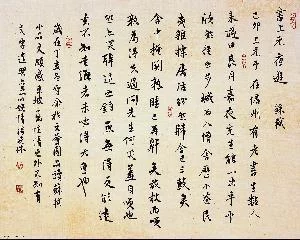 書上元夜遊 蘇軾
己卯上元予在儋州有老書生數人
來過曰良月嘉夜先生能一出乎予
欣然從之步城西入僧舍歷小巷民
夷雜揉屠沽紛然歸舍已三鼓矣
舍中掩關熟睡已再鼾矣放杖而笑
孰為得失過問先生何笑蓋自笑也
然亦笑韓退之釣魚無得更欲遠
去不知走海者未必得大魚也
歲在丁亥 品讀蘇軾
小品文頗感平淡
文字